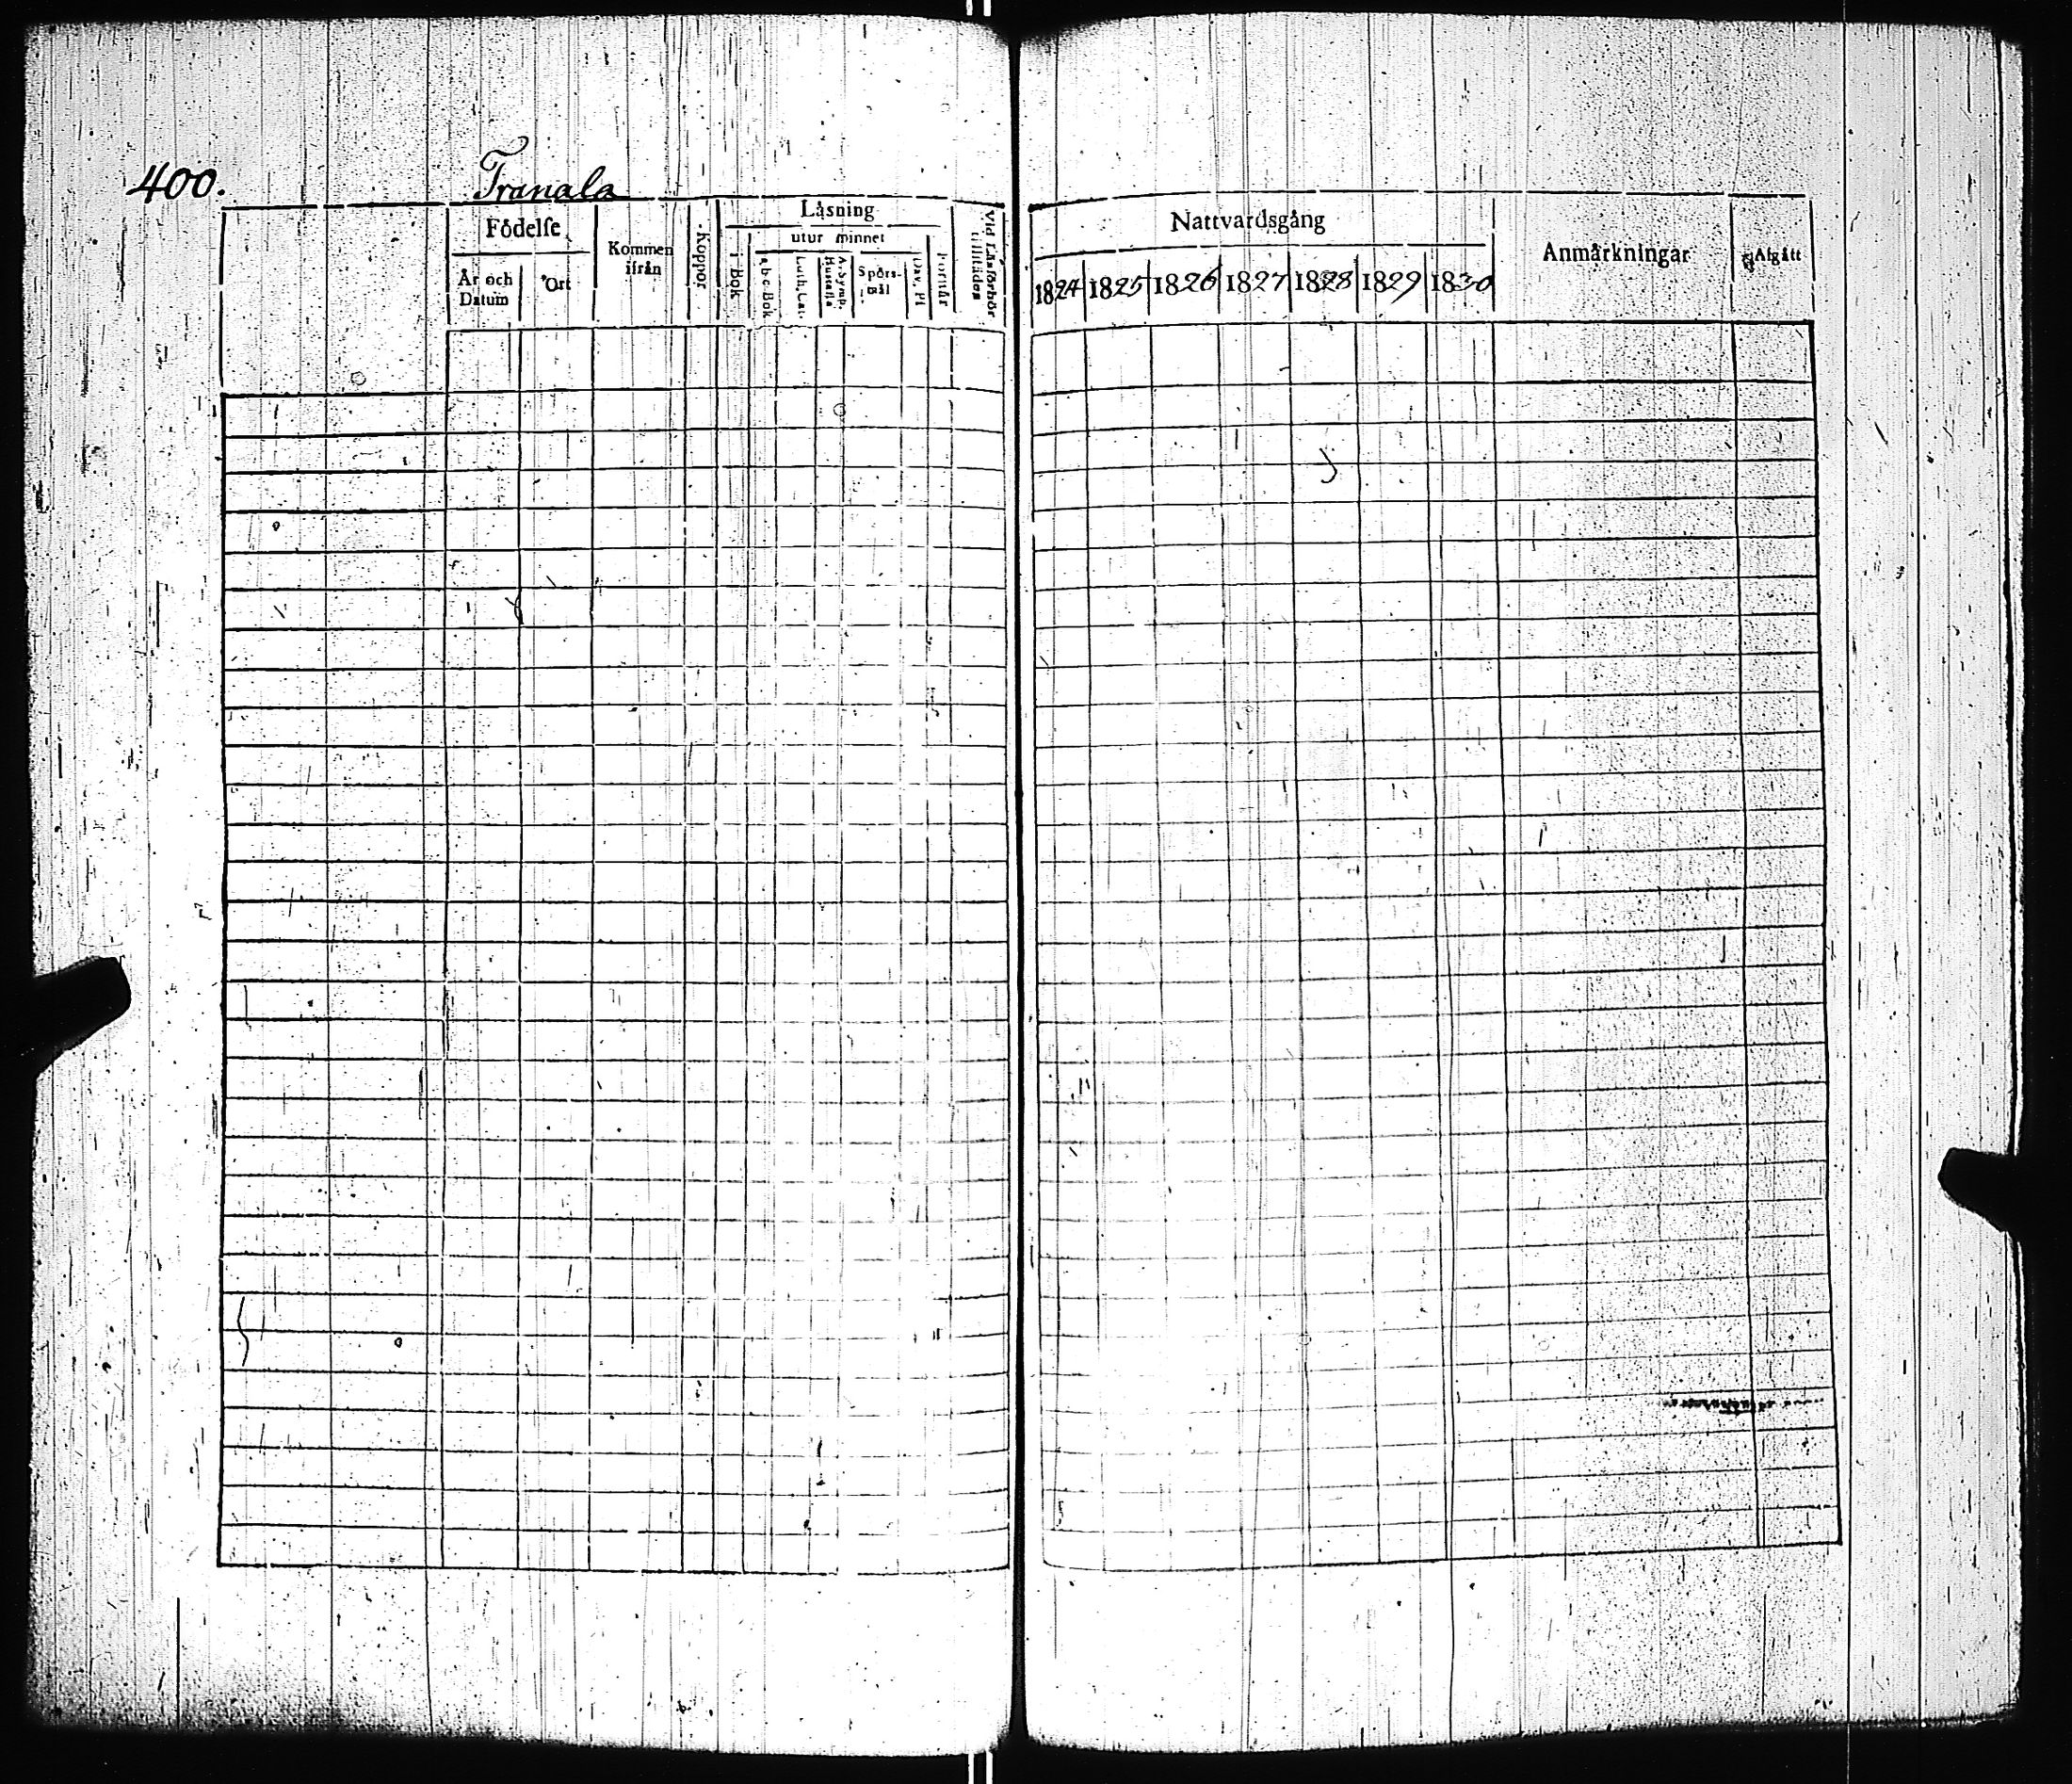 400. Tranala
Födelse
År och Datum
Ort
Kommen ifrån
Koppor
Läsning
i Bok
utur minnet
a b c Bok
Luth. Cat.
A. Symb. Hustafla
Spörsmål
Dav. Ps
Förstår
Vid Läsförhör tillstädes
Nattvardsgång
1824 1825 1826 1827 1828 1829 1830
Anmärkningar
Afgått